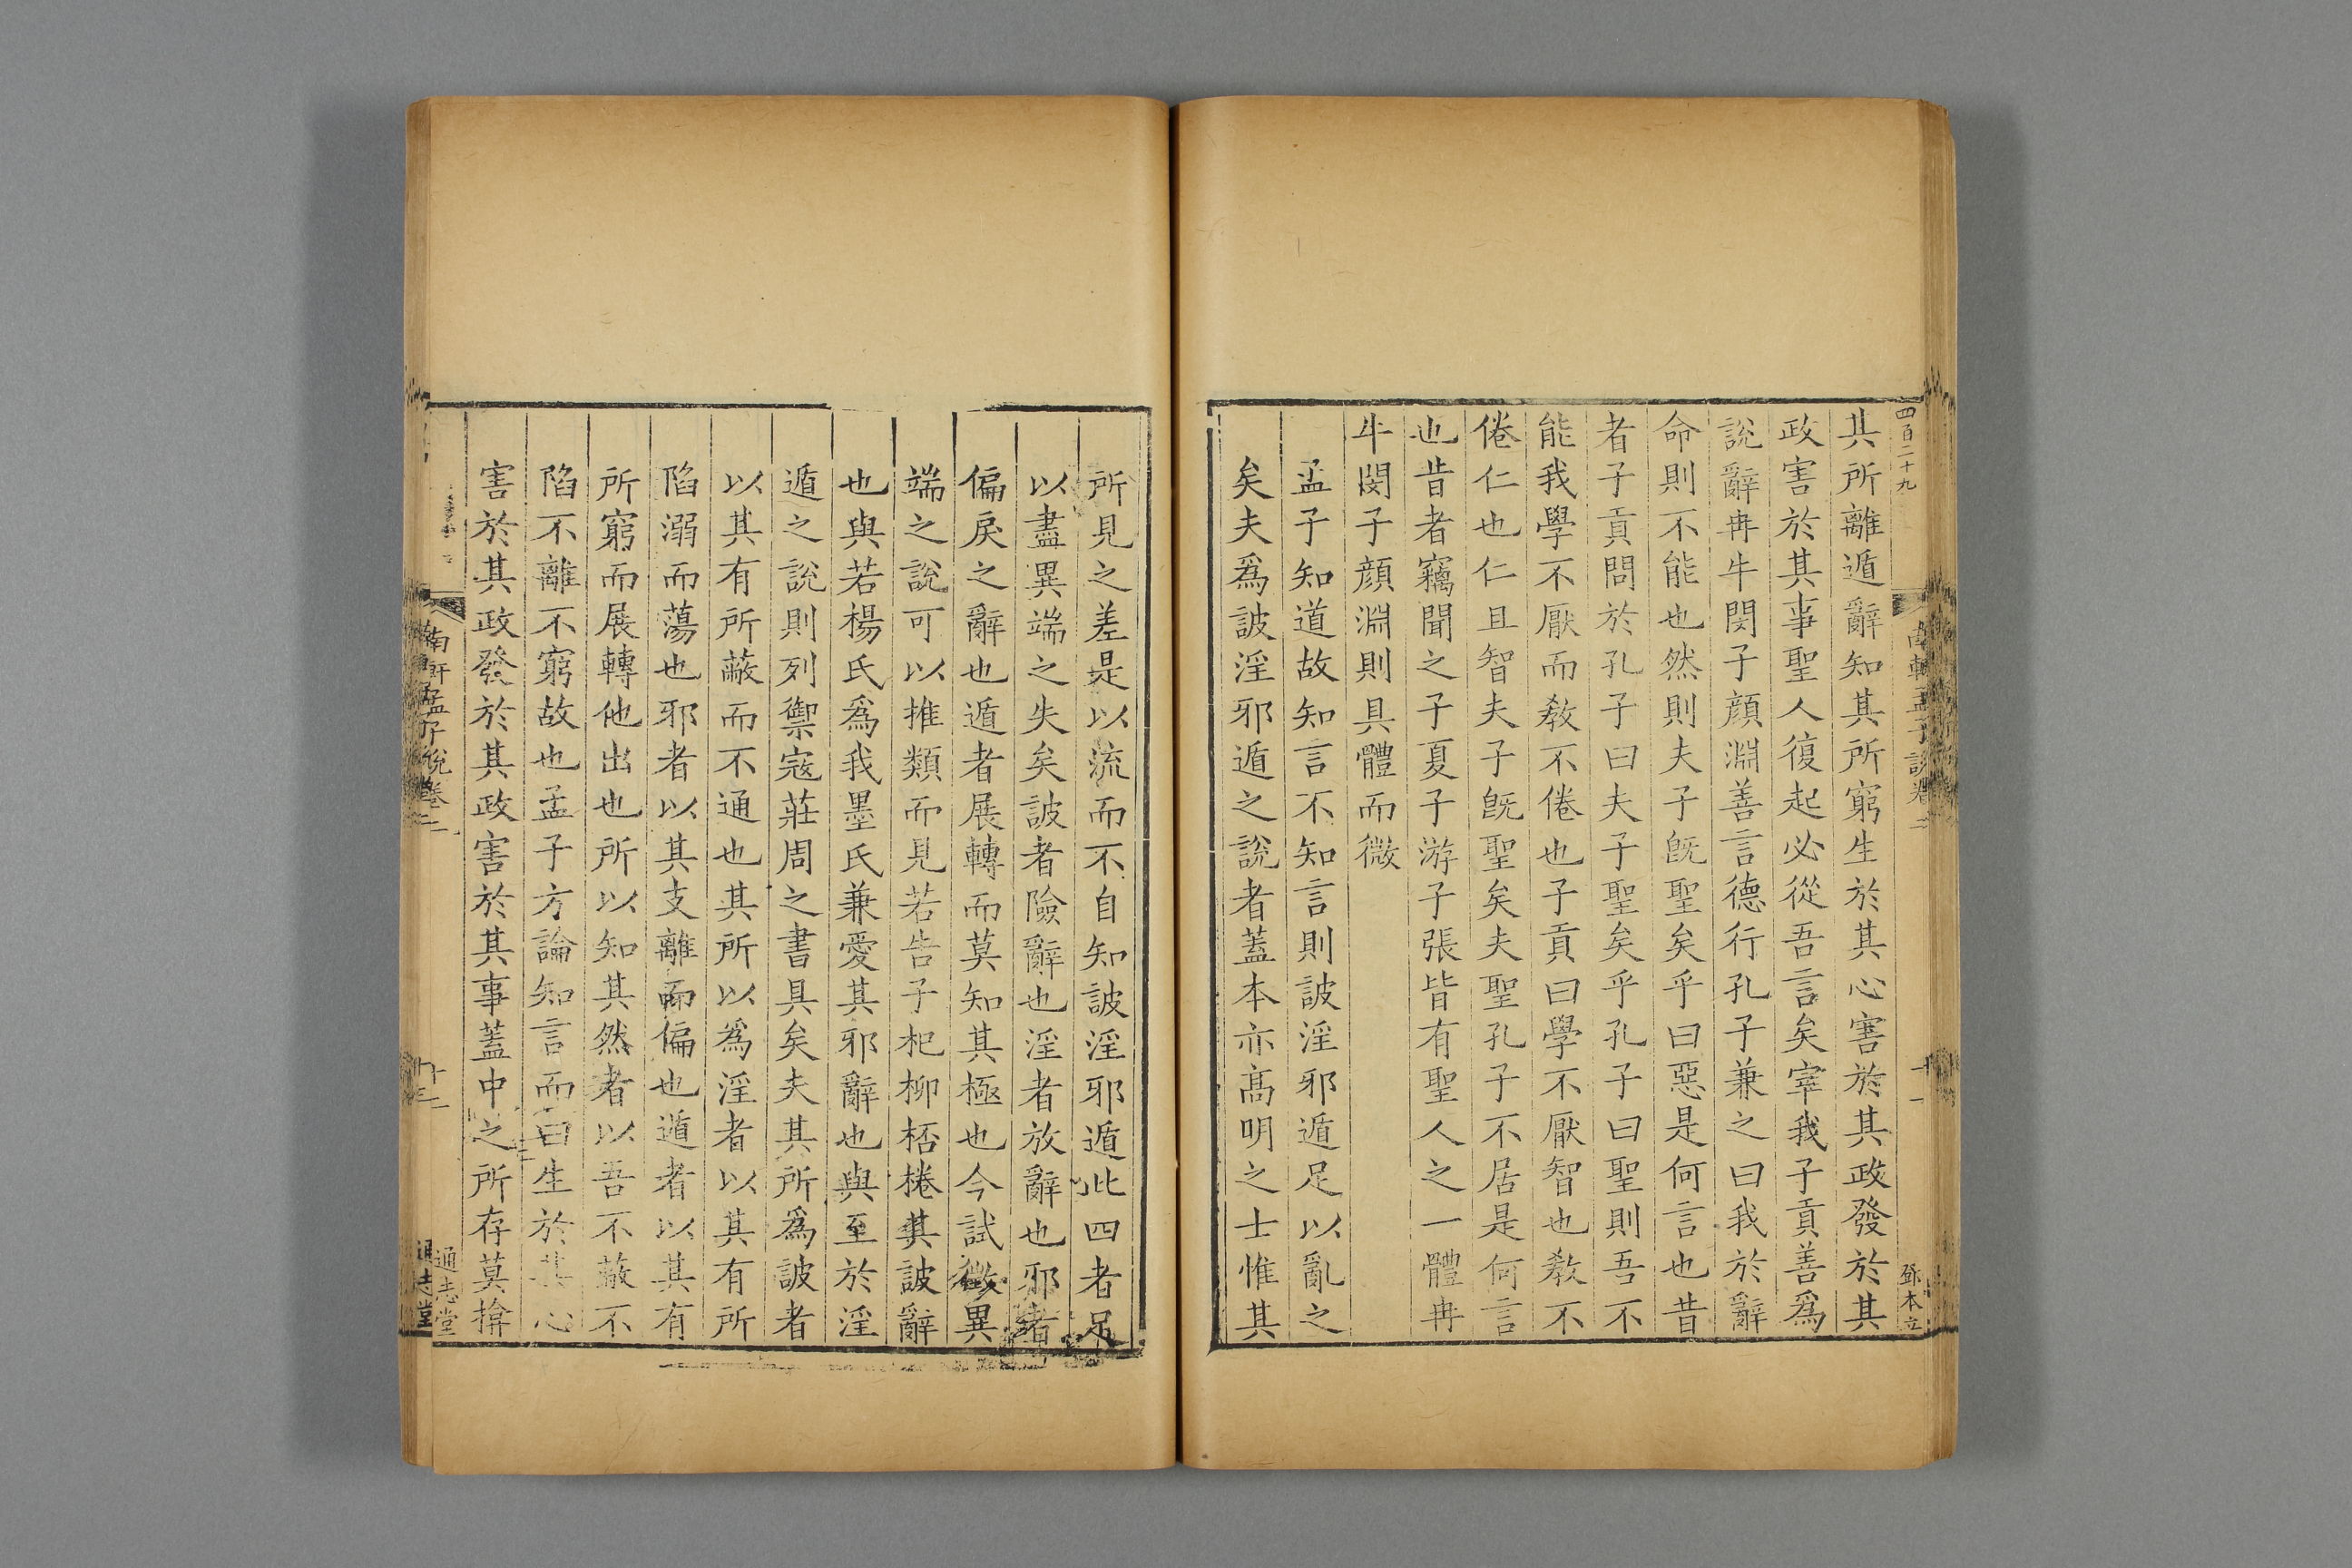 四百二十九
其所離遁辭知其所窮生於其心害於其政發於其
政害於其事聖人復起必從吾言矣宰我子貢善爲
說辭冉牛閔子顔淵善言德行孔子兼之曰我於辭
命則不能也然則夫子旣聖矣乎曰惡是何言也昔
者子貢問於孔子曰夫子聖矣乎孔子曰聖則吾不
能我學不厭而敎不倦也子貢曰學不厭智也敎不
倦仁也仁且智夫子旣聖矣夫聖孔子不居是何言
也昔者竊聞之子夏子游子張皆有聖人之一體冉
牛閔子顔淵則具體而微
孟子知道故知言不知言則詖淫邪遁足以亂之
矣夫爲詖淫邪遁之說者蓋本亦高明之士惟其
所見之差是以流而不自知詖淫邪遁此四者足
以盡異端之失矣詖者險辭也淫者放辭也邪者
偏戾之辭也遁者展轉而莫知其極也今試微異
端之說可以推類而見若告子杞柳桮棬其詖辭
也與若楊氏爲我墨氏兼愛其邪辭也與至於淫
遁之說則列禦寇莊周之書具矣夫其所爲詖者
以其有所蔽而不通也其所以爲淫者以其有所
陷溺而蕩也邪者以其支離而偏也遁者以其有
所窮而展轉他出也所以知其然者以吾不蔽不
陷不離不窮故也孟子方論知言而曰生於其心
害於其政發於其政害於其事蓋中之所存莫揜
南軒孟子說卷二
十二
通志堂